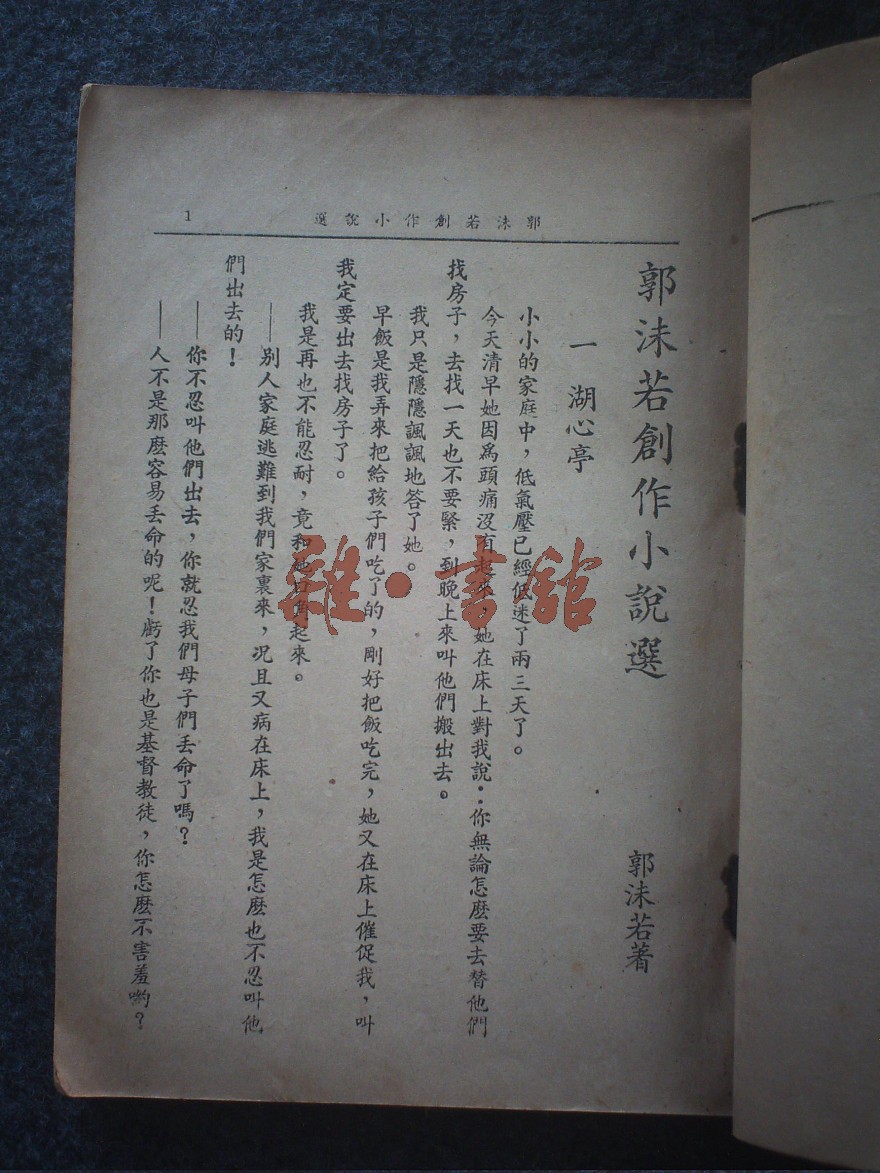 郭沫若創作小說選
1
郭沫若創作小說選
郭沫若著
一 湖心亭
小小的家庭中，低氣壓已經低迷了兩三天了。
今天清早她因爲頭痛沒有起來，她在床上對我說：你無論怎麽要去替他們
找房子，去找一天也不要緊，到晚上來叫他們搬出去。
我只是隱隱諷諷地答了她。
早飯是我弄來把給孩子們吃了的，剛好把飯吃完，她又在床上催促我，叫
我定要出去找房子了。
我是再也不能忍耐，竟和她口角起來。
——別人家庭逃難到我們家裏來，况且又病在床上，我是怎麽也不忍叫他
們出去的！
——你不忍叫他們出去，你就忍我們母子們丢命了嗎？
——人不是那麽容易丢命的呢！虧了你也是基督教徒，你怎麽不害羞喲？
雜·書館